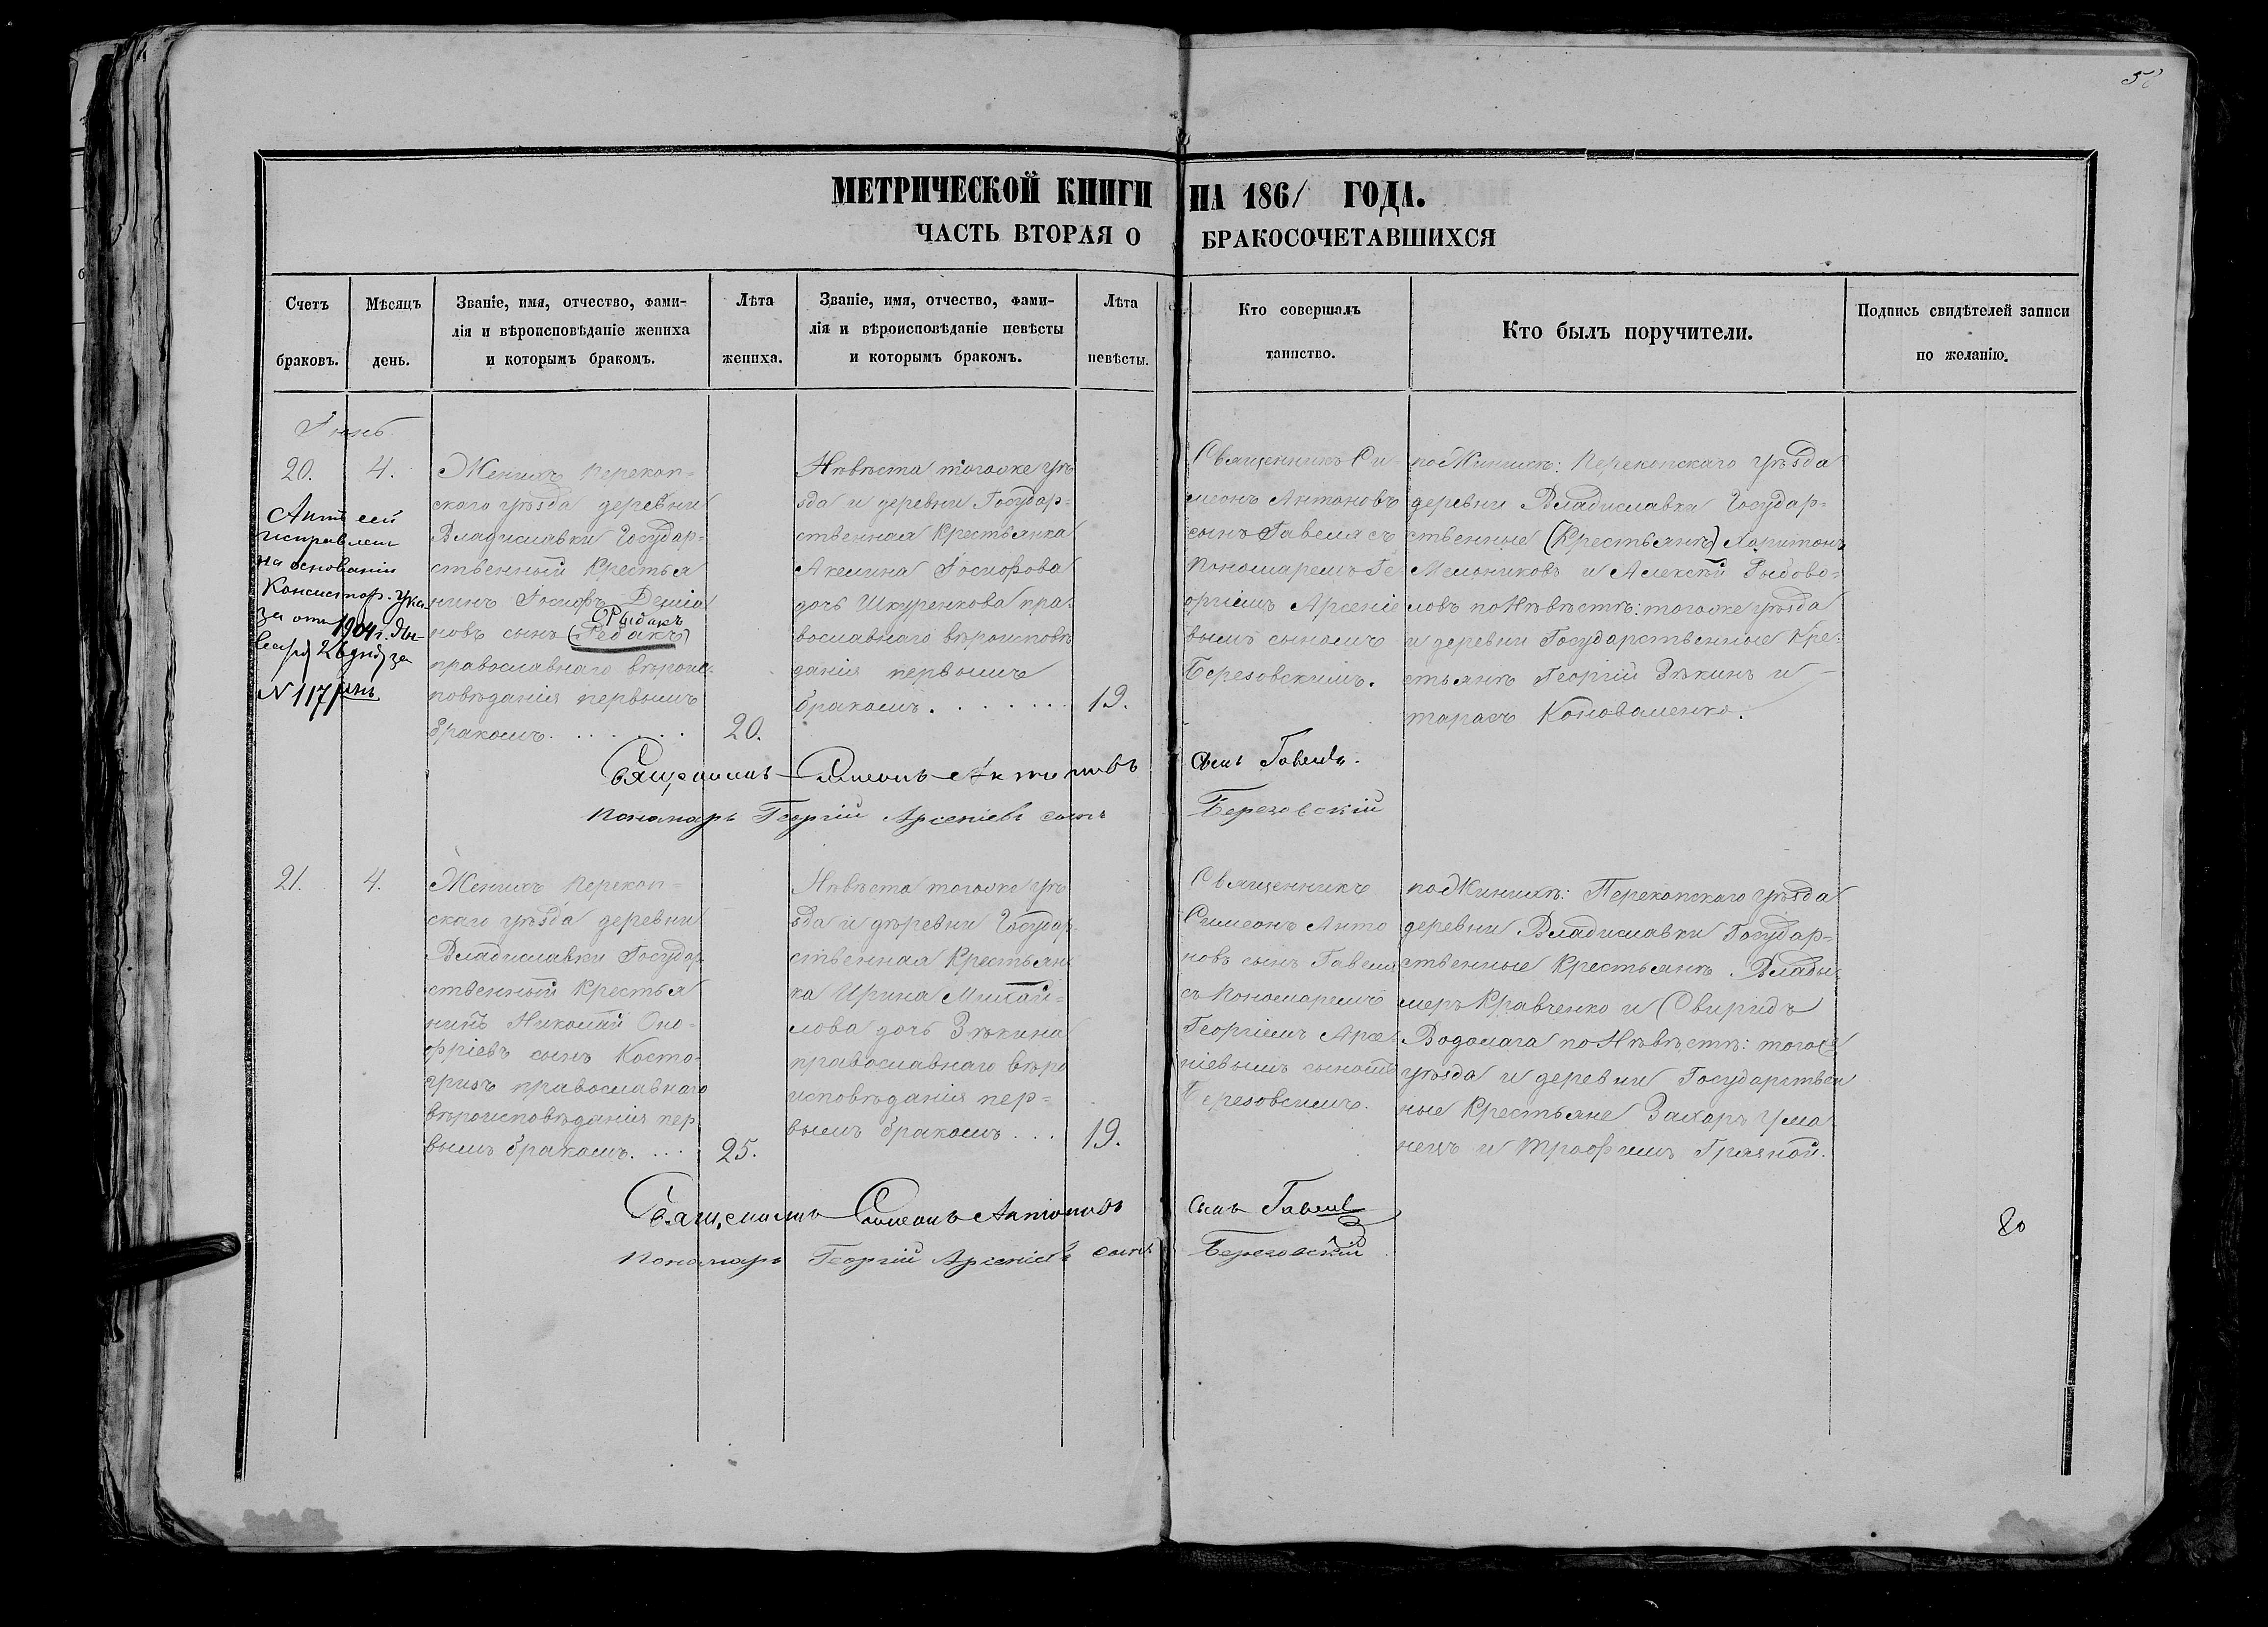 МЕТРИЧЕСКОЙ КНИГИ НА 1861 ГОДА.
ЧАСТЬ ВТОРАЯ О БРАКОСОЧЕТАВШИХСЯ
Счетъ браковъ.
Мѣсяцъ день.
Званіе, имя, отчество, фами-
лія и вѣроисповѣданіе жениха
и которымъ бракомъ.
Лѣта
жениха.
Званіе, имя, отчество, фами-
лія и вѣроисповѣданіе невѣсты
и которымъ бракомъ.
Лѣта
невѣсты.
Кто совершалъ
таинство.
Кто былъ поручители.
Подпись свидѣтелей записи
по желанію.
Іюнь
20. 4.
Актъ сей
исправлен
на основаніи
Консистор. Ука
за отъ 1904 г.
26 за
N 117
Женихъ Перекоп=
скаго уѣзда деревни
Владиславки Государ=
ственный Крестья
нинъ Іосифъ Деміа
Рыбакъ
новъ сынъ (Редакъ)
православнаго вѣроис=
повѣданія первымъ
бракомъ. 20.
Нѣвѣста тогоже уѣ
зда и деревни Государ=
ственная Крестьянка
Акелина Іосифова
дочь Шкуренкова пра=
вославнаго вѣроисповѣ
данія первымъ
бракомъ. 19.
Священникъ Си
меонъ Антоновъ
сынъ Гавеля съ
Пономаремъ Ге
оргіемъ Арсеніе
вымъ сыномъ
Березовскимъ.
по Жинихѣ: Перекопскаго уѣзда
деревни Владиславки Государ=
ственные (Крестьянѣ) Харитонъ
Мельниковъ и Алексѣй
ловъ по Нѣвѣстѣ: тогоже уѣзда
и деревни Государственные Кре=
стьянѣ Георгій Зѣкинъ и
тарасъ Коноваленко.
Священникъ Симеонъ Антоновъ сынъ Гавеля.
Пономарь Георгій Арсеніевъ сынъ Березовскій
21. 4.
Женихъ Перекоп=
скаго уѣзда деревни
Владиславки Государ
ственный Крестья
нинъ Николай Оно=
фріевъ сынъ Косто=
гризъ православнаго
вѣроисповѣданія пер
вымъ бракомъ. 25.
Нѣвѣста тогоже уѣ
зда и дѣревни Государ=
ственная Крестьян
ка Ирина Михай=
лова дочь Зѣкина
православнаго вѣро
исповѣданія пер=
вымъ бракомъ. 19.
Священникъ
Симеонъ Анто
новъ сынъ Гавеля
съ Пономаремъ
Георгіемъ Арсе
ніевымъ сыномъ
Березовскимъ.
по Жинихѣ: Перекопскаго уѣзда
деревни Владиславки Государ=
ственные Крестьянѣ. Влады=
меръ Кравченко и Свиридъ
Водолага по Нѣвѣстѣ: тогоже
уѣзда и деревни Государствен
ные Крестьяне Захаръ Ума
нецъ и Трофимъ Грязной.
Священникъ Симеонъ Антоновъ сынъ Гавеля
Пономарь Георгій Арсеніевъ сынъ Березовскій